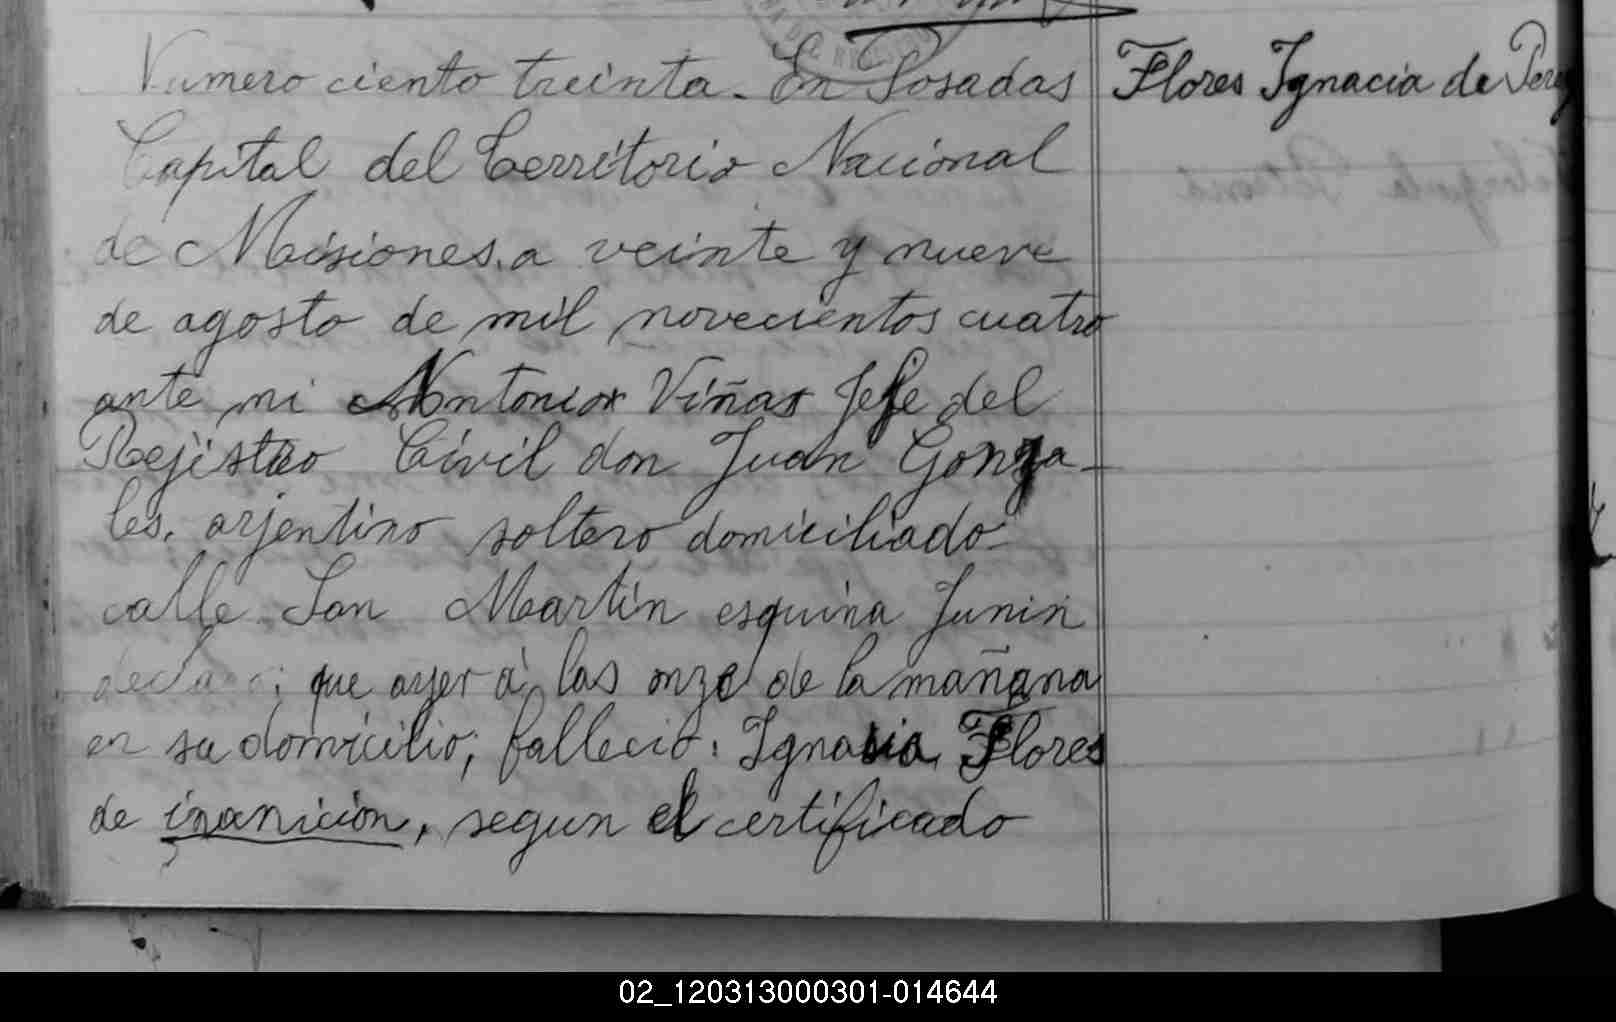 Numero ciento treinta. En Posadas
Flores Ignacia de Perez
Capital del Territorio Nacional
de Misiones, a veinte y nueve
de agosto de mil novecientos cuatro
ante mi Antonio Viñas Jefe del
Rejistro Civil don Juan Gonza-
les, arjentino soltero domiciliado
calle San Martin esquina Junin
declaró; que ayer á las onze de la mañana
en su domicilio; falleció: Ignacia Flores
de inanición, segun el certificado
02_120313000301-014644